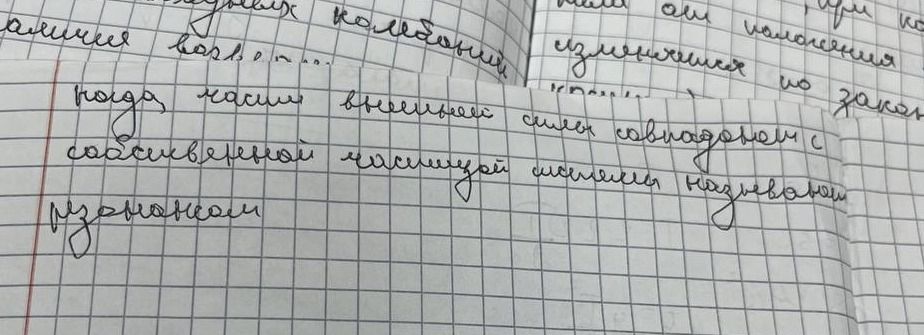 колебаний
от положения
изменяется по закон
когда, часты внешней силы совпадают с
собственной частицей системы называют
резонансом